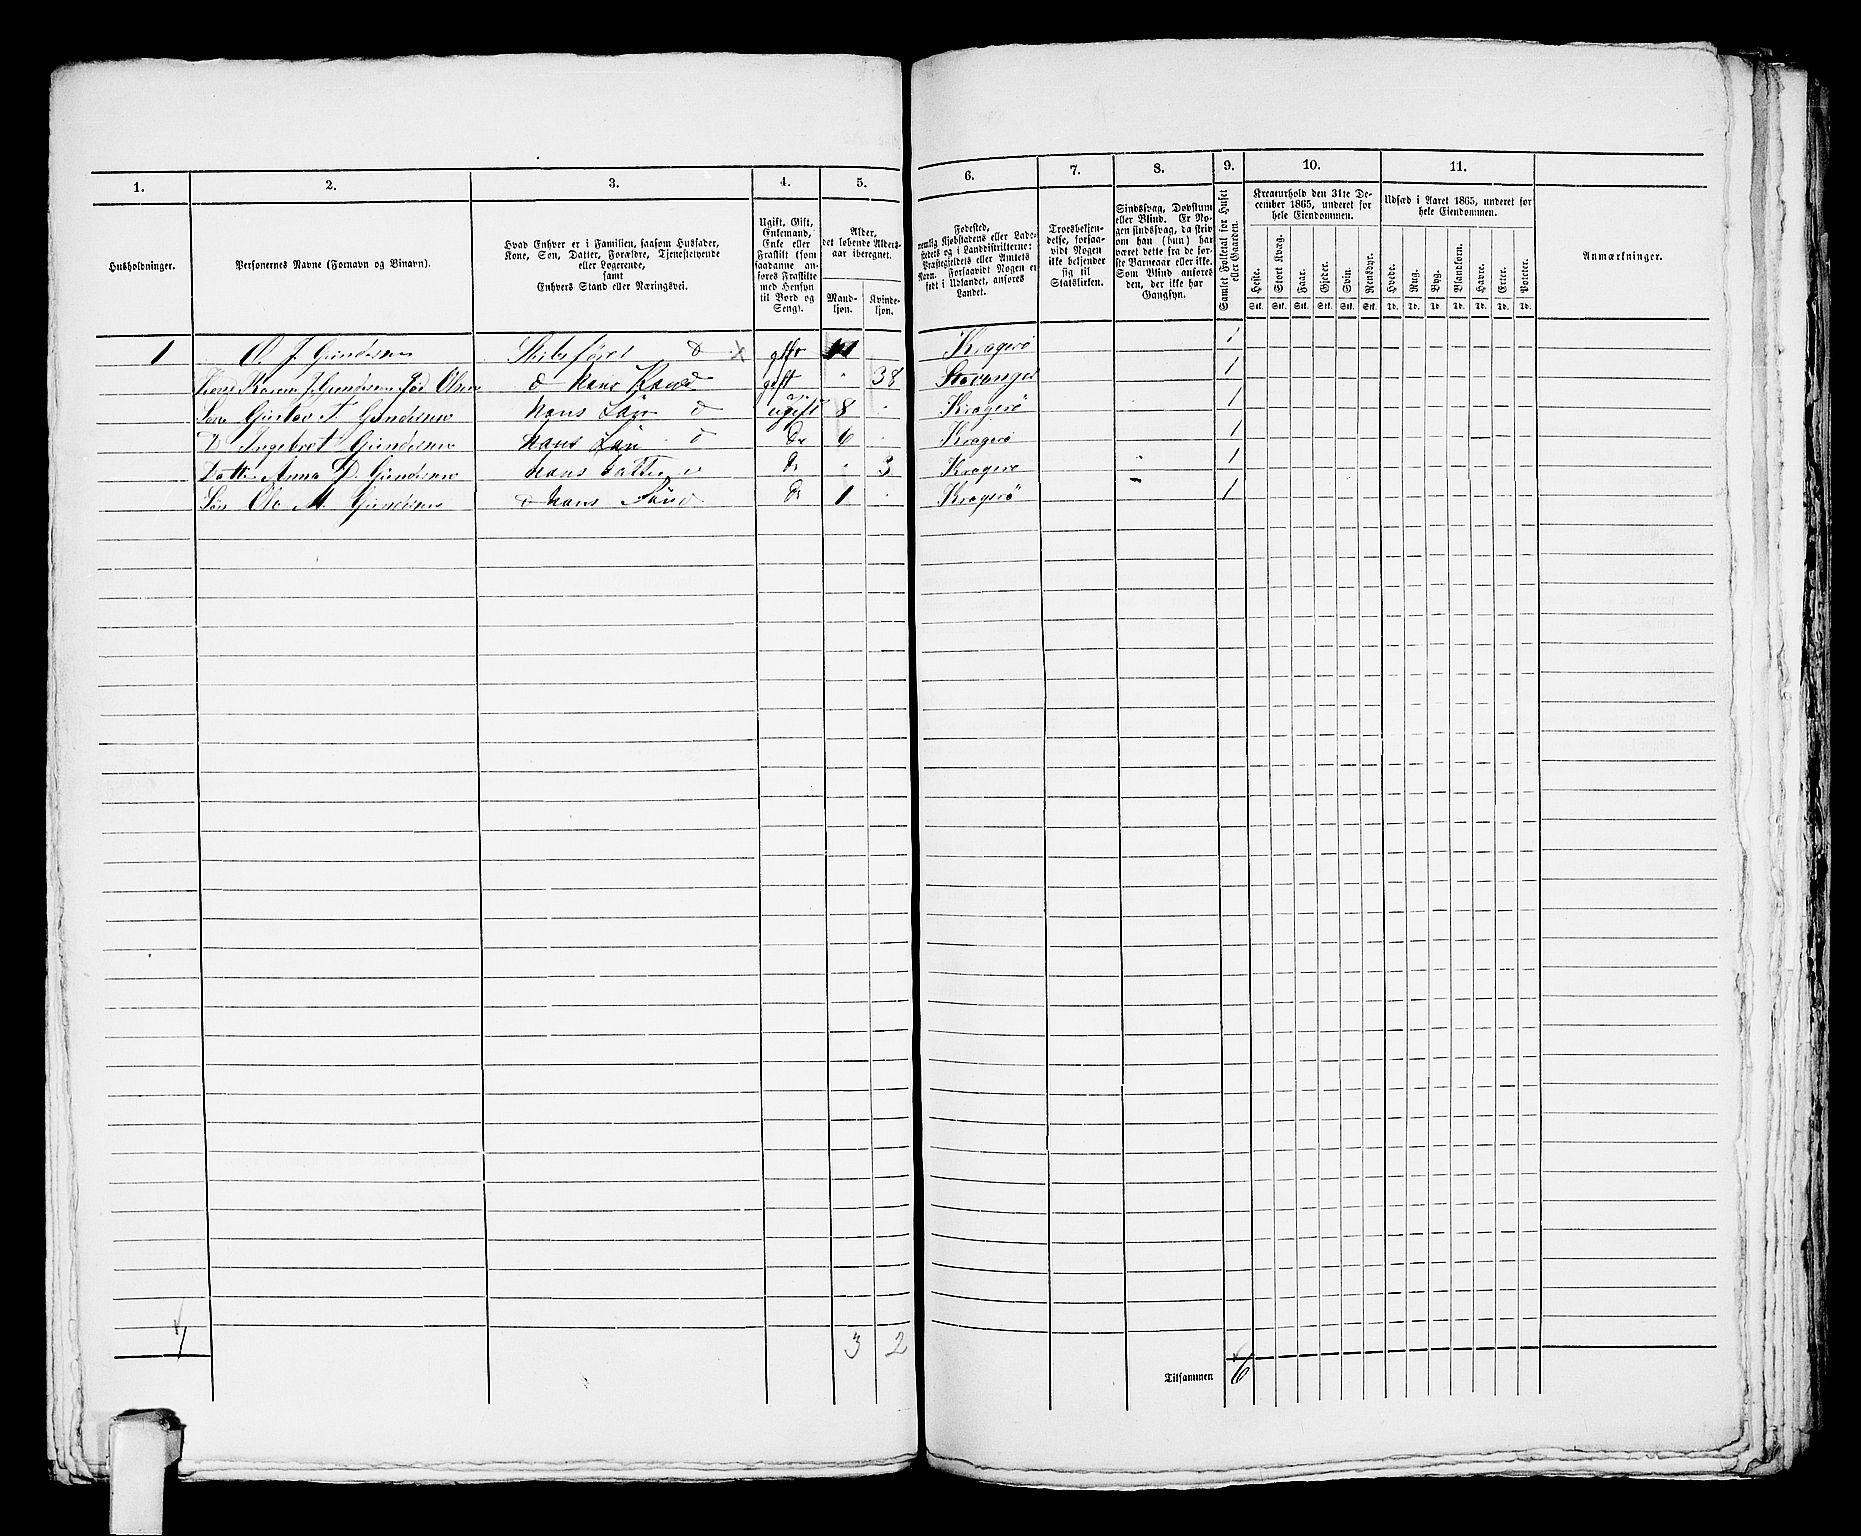 1. 2. 3. 4. 5. 6. 7. 8. 9. 10. 11.
Husholdninger.
Personernes Navne (Fornavn og Binavn).
Hvad Enhver er i Familien, saasom Husfader,
Kone, Søn, Datter, Forældre, Tjenestetyende
eller Logerende,
samt
Enhvers Stand eller Næringsvei.
Ugift, Gift,
Enkemand,
Enke eller
Fraskilt (som
saadanne anføres
Fraskilte
med Hensyn
til Bord og
Seng).
Alder,
det løbende Aldersaar
iberegnet.
Mandkjøn.
Kvindekjøn.
Fødested,
nemlig Kjøbstadens eller Ladestedets
og i Landdistrikterne:
Præstegjeldets eller Amtets
Navn. Forsaavidt Nogen er
født i Udlandet, anføres
Landet.
Troesbekjendelse,
forsaavidt
Nogen
ikke bekjender
sig til
Statskirken.
Sindssvag, Døvstum
eller Blind. Er Nogen
sindssvag, da skriv
om han (hun) har
været dette fra de første
Barneaar eller ikke.
Som Blind anføres
den, der ikke har
Gangsyn.
Samlet Folketal for Huset
eller Gaarden.
Kreaturhold den 31te December
1865, underet for
hele Eiendommen.
Heste. Stort Kvæg. Faar. Gjeder. Svin. Rensdyr.
Stk. Stk. Stk. Stk. Stk. Stk.
Udsæd i Aaret 1865, underet for
hele Eiendommen.
Hvede. Rug. Byg. Blandkorn. Havre. Erter. Poteter.
Td. Td. Td. Td. Td. Td. Td.
Anmærkninger.
1 O. J. Gundersen Skibsfører d x gift Kragerö 1
Kone Karen J. Gundersen fød Olsen d hans Kone gift " 38 Stavanger 1
Søn Gustav F. Gundersen hans Sön d ugift 8 Kragerö 1
D Ingebret Gundersen hans Sön d Do 6 Kragerö 1
Datter Anna D. Gundersen hans datter Do " 3 Kragerö 1
Søn Ole M. Gundersen d hans Sön Do 1 Kragerö 1
1 3 2
Tilsammen 6